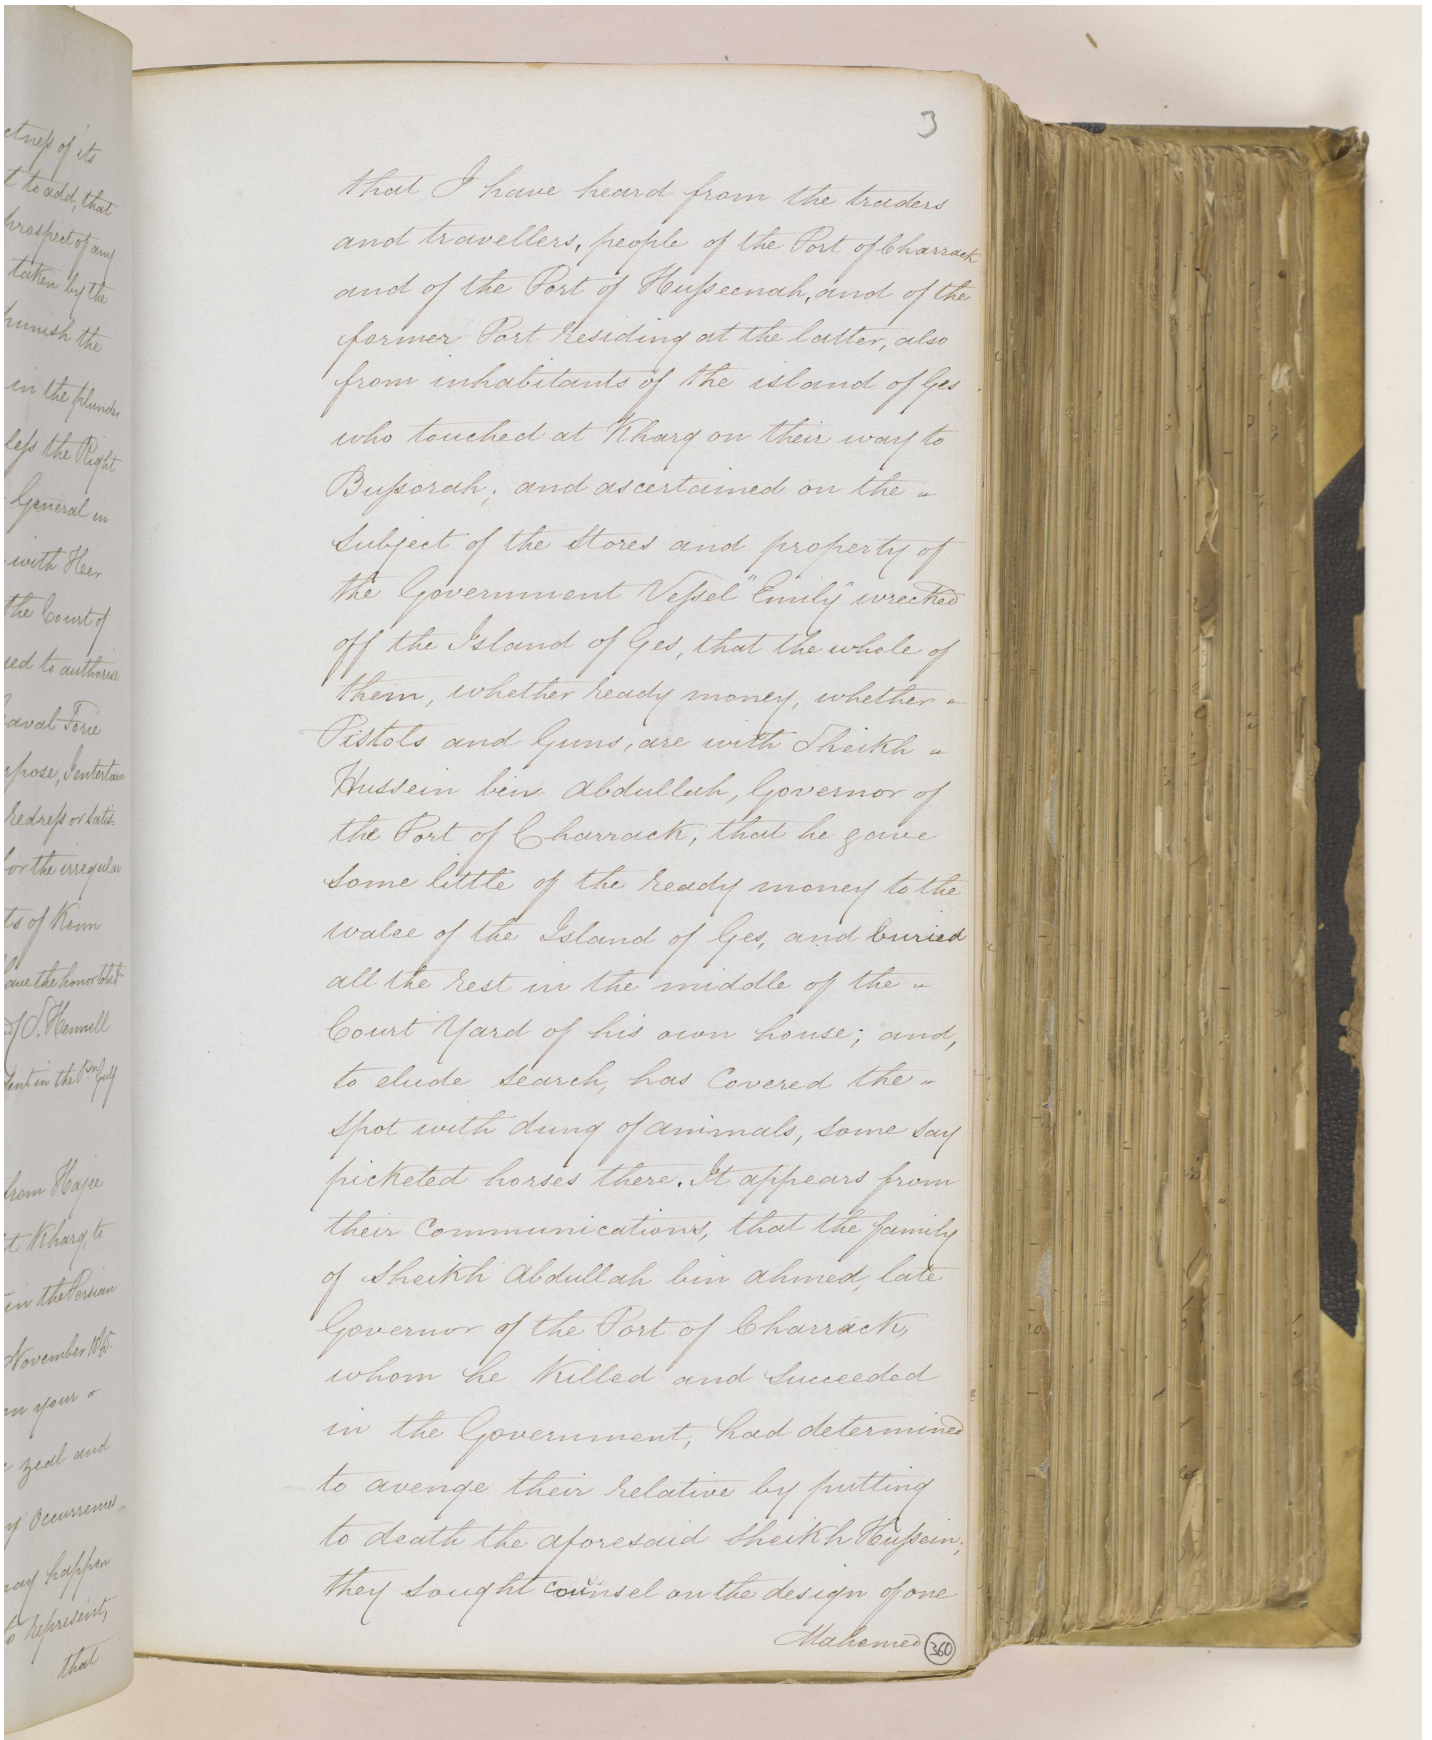 ctness of its
t to add, that
prospect of any
taken by the
punish the
in the plunder
less the Right
General in
with Her
the Court of
sed to authorise
Naval Force
rpose, I entertain
redress or satis-
for the irregular
ts of Kenn
have the honor to be &c
S. Hennell
dent in the Pn Gulf
from Hajee
t Kharg, to
in the Persian
November 1845.
on your
zeal and
ny occurrences
may happen
to represent,
that
3
that I have heard from the traders
and travellers, people of the Port of Charrack
and of the Port of Husseenah, and of the
former Port residing at the latter, also
from inhabitants of the island of Ges
who touched at Kharg on their way to
Bussorah; and ascertained on the "
subject of the Stores and property of
the Government Vessel "Emily" wrecked
off the Island of Ges, that the whole of
them, whether ready money, whether "
Pistols and Guns, are with Sheikh "
Hussein bin Abdullah, Governor of
the Port of Charrack; that he gave
some little of the ready money to the
walee of the Island of Ges, and buried
all the rest in the middle of the "
Court Yard of his own house; and,
to elude search, has covered the "
spot with dung of animals, some say
picketed horses there. It appears from
their communications, that the family
of Sheikh Abdullah bin Ahmed, late
Governor of the Port of Charrack,
whom he killed and succeeded
in the Government, had determined
to avenge their relative by putting
to death the aforesaid Sheikh Hussein;
they sought counsel on the design of one
Mahomed
360